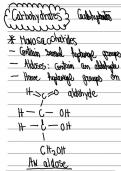 Carbohydrates Carbohydrates
* Monosaccharides
- Contain several hydroxyl groups
- Aldoses: Contain an aldehyde
- Have hydroxyl groups on
H C O aldehyde
H - C - OH
H - C - OH
CH2OH
An aldose